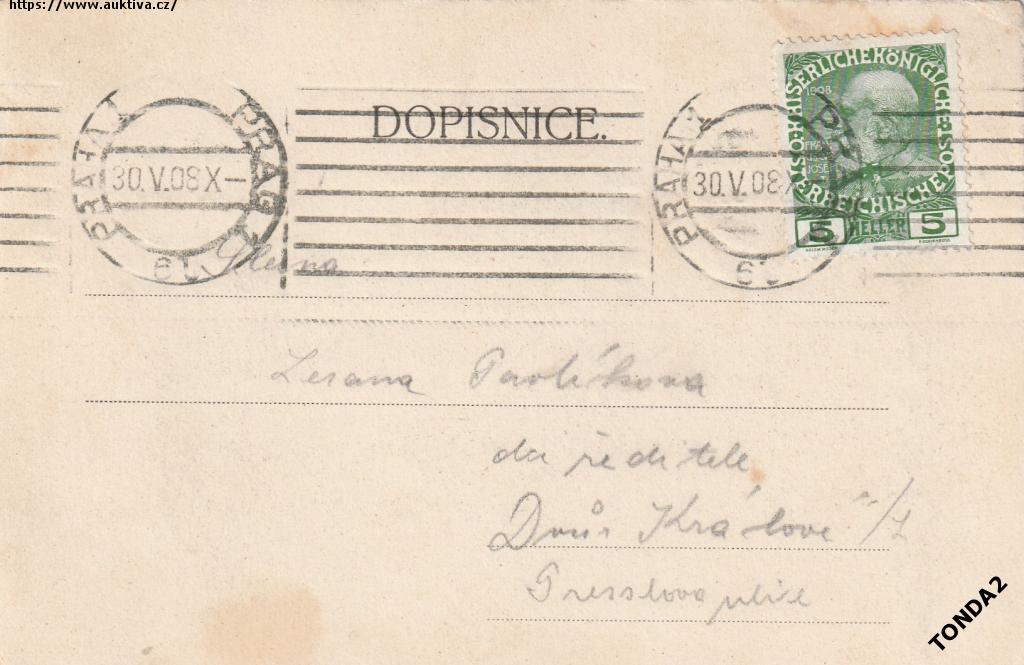 https://www.auktiva.cz/
DOPISNICE.
PRAHA 1 PRAG 1
30.V.08 X-
6b
PRAHA 1 PRAG 1
30.V.08 X-
6b
KAISERLICHE KÖNIGLICHE ÖSTERREICHISCHE POST
1908
5 HELLER 5
Slečna
Pavlíkova
ředitele
Dvůr Králové n/L
Presslova ulice
TONDA2